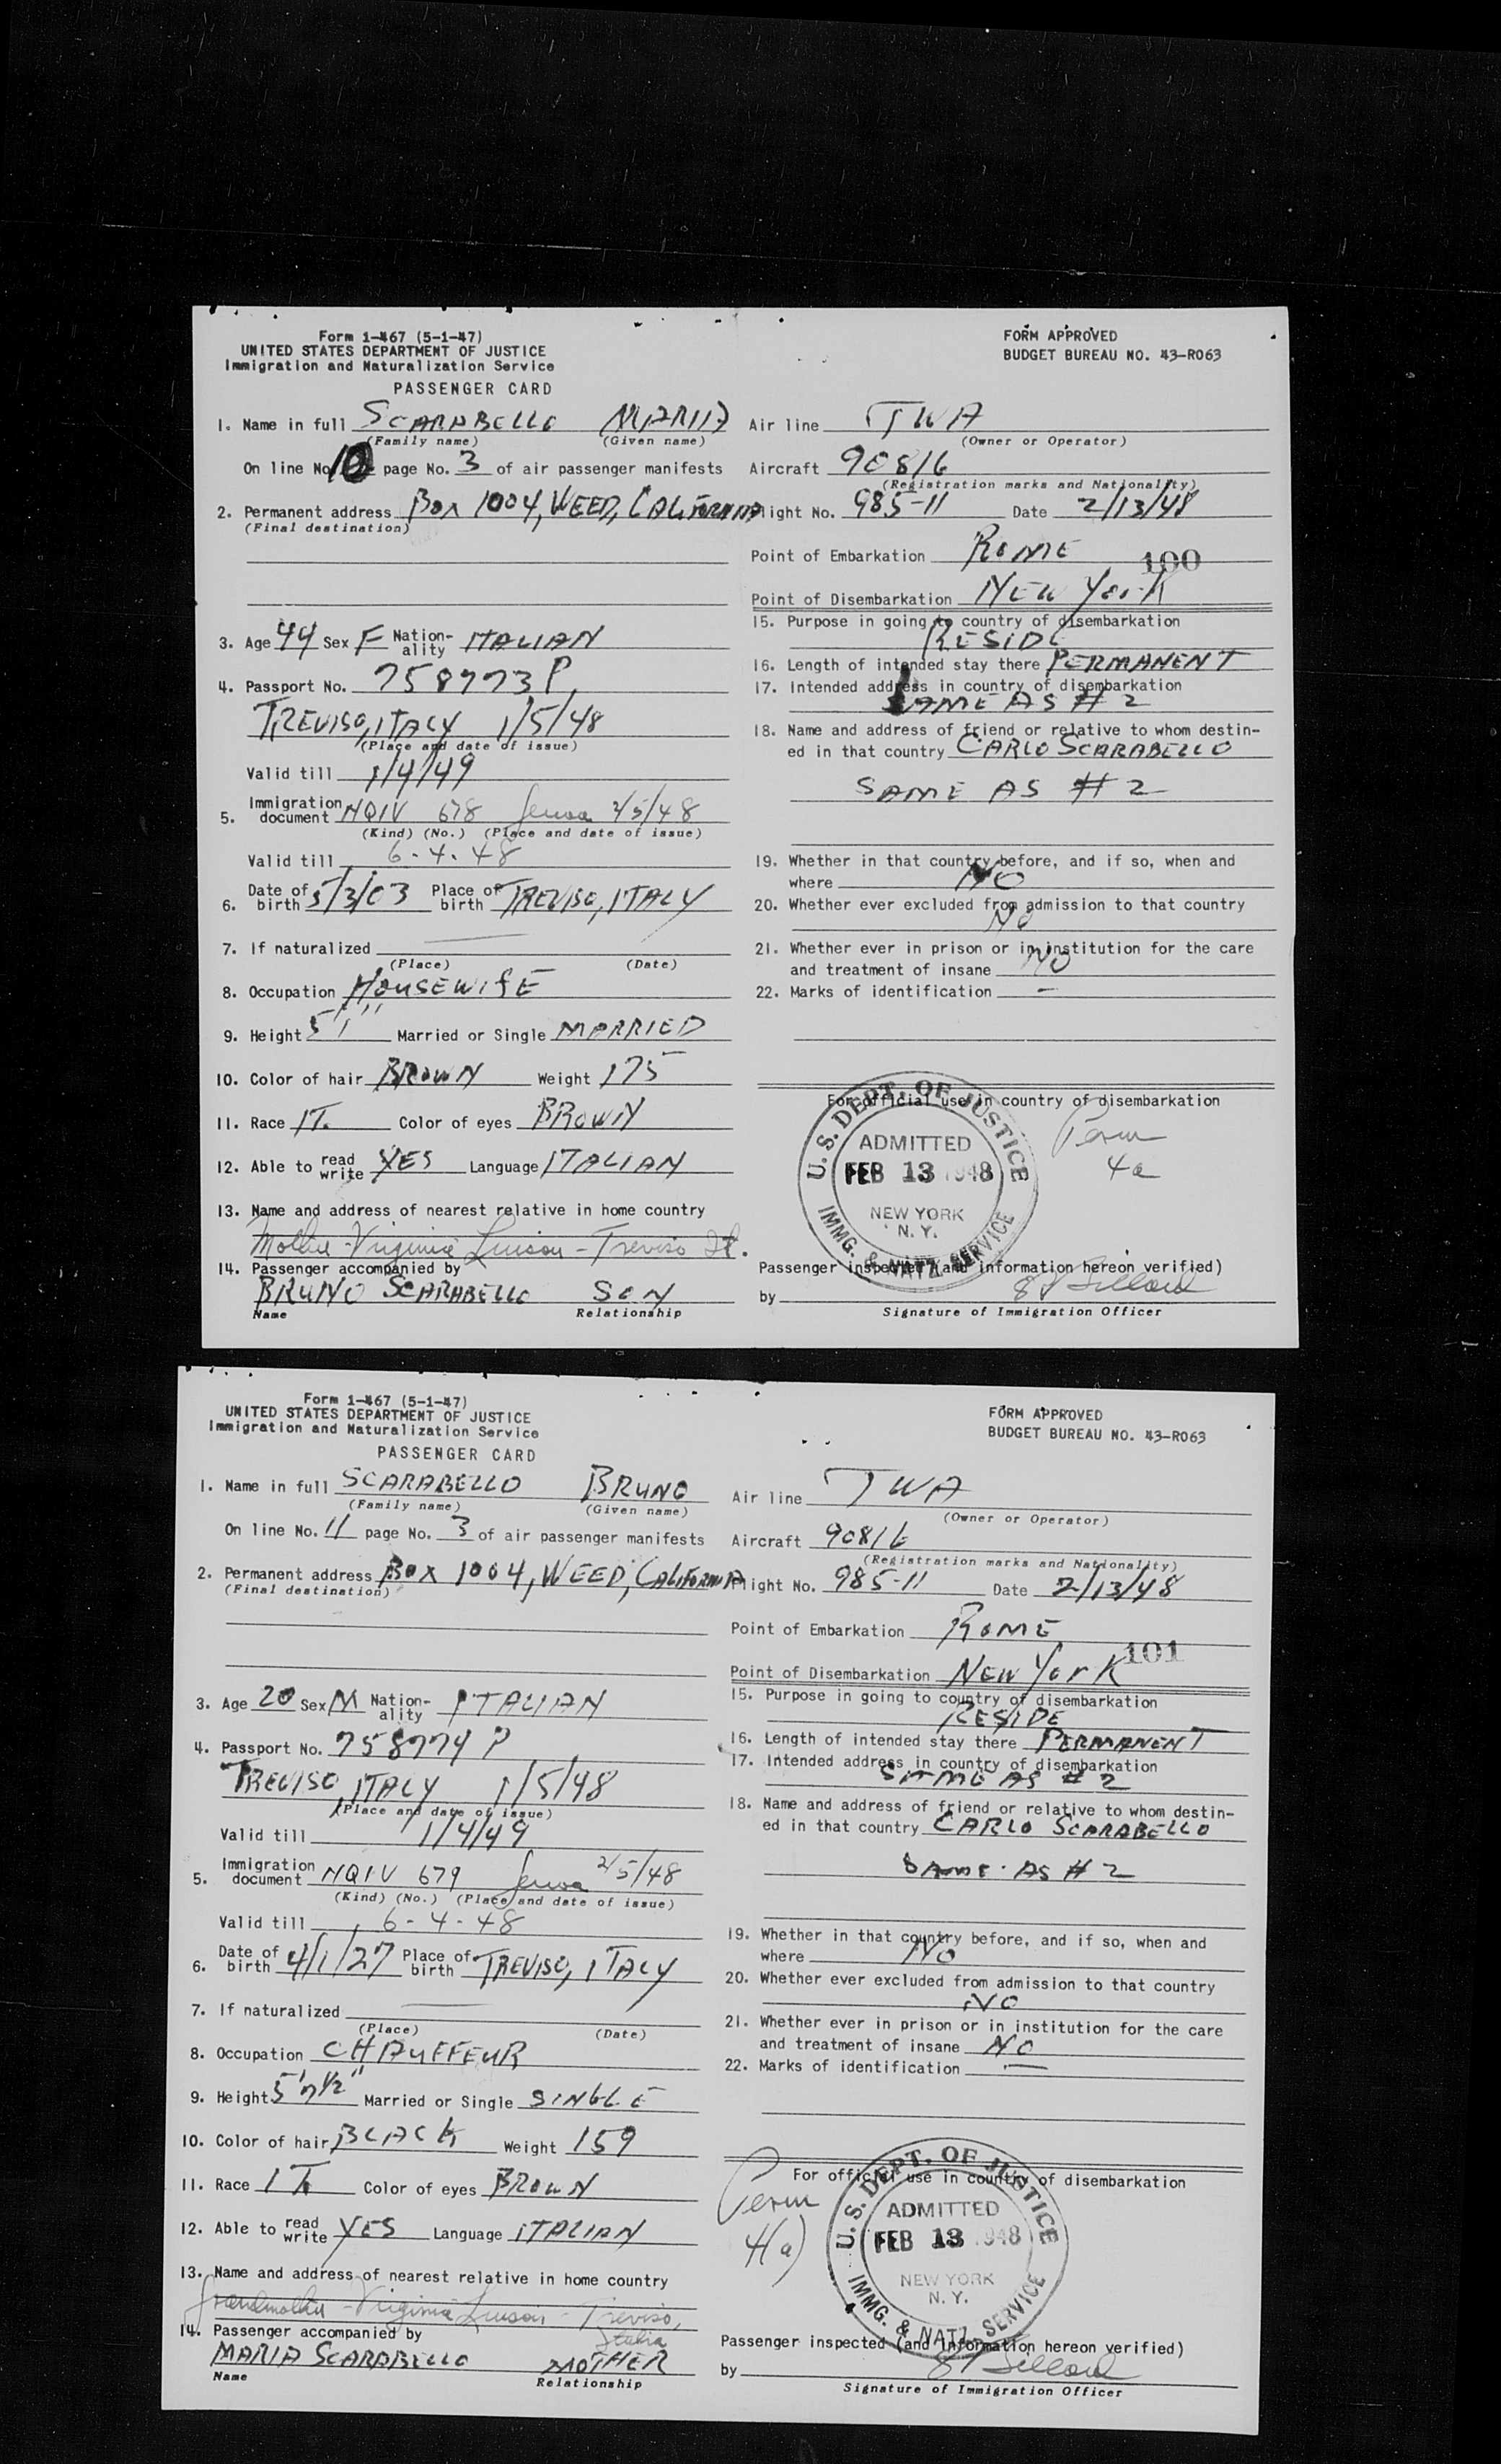 Form 1-467 (5-1-47)
UNITED STATES DEPARTMENT OF JUSTICE
Immigration and Naturalization Service
PASSENGER CARD
FORM APPROVED
BUDGET BUREAU NO. 43-R063
1. Name in full SCARABELLO MARIA
(Family name) (Given name)
On line No. 10 page No. 3 of air passenger manifests
2. Permanent address Box 1004, WEED, CALIFORNIA
(Final destination)
3. Age 44 Sex F Nation-ality ITALIAN
4. Passport No. 758773 P
TREVISO, ITALY 1/5/48
(Place and date of issue)
Valid till 1/4/49
5. Immigration document NQIV 678 Genoa 2/5/48
(Kind) (No.) (Place and date of issue)
Valid till 6-4-48
6. Date of birth 5/3/03 Place of birth TREVISO, ITALY
7. If naturalized
(Place) (Date)
8. Occupation HOUSEWIFE
9. Height 5'1" Married or Single MARRIED
10. Color of hair BROWN Weight 175
11. Race IT. Color of eyes BROWN
12. Able to read write YES Language ITALIAN
13. Name and address of nearest relative in home country
Mother - Virginia Luison - Treviso It.
14. Passenger accompanied by
BRUNO SCARABELLO SON
Name Relationship
Air line TWA
(Owner or Operator)
Aircraft 90816
(Registration marks and Nationality)
Flight No. 985-11 Date 2/13/48
Point of Embarkation ROME
100
Point of Disembarkation NEW YorK
15. Purpose in going to country of disembarkation
RESIDE
16. Length of intended stay there PERMANENT
17. Intended address in country of disembarkation
SAME AS # 2
18. Name and address of friend or relative to whom destin-
ed in that country CARLO SCARABELLO
SAME AS # 2
19. Whether in that country before, and if so, when and
where NO
20. Whether ever excluded from admission to that country
NO
21. Whether ever in prison or in institution for the care
and treatment of insane NO
22. Marks of identification —
For official use in country of disembarkation
U.S. DEPT. OF JUSTICE
ADMITTED
FEB 13 1948
NEW YORK
N. Y.
IMMG. & NATZ. SERVICE
Perm
4a
Passenger inspected (and information hereon verified)
by
Signature of Immigration Officer
Form 1-467 (5-1-47)
UNITED STATES DEPARTMENT OF JUSTICE
Immigration and Naturalization Service
PASSENGER CARD
FORM APPROVED
BUDGET BUREAU NO. 43-R063
1. Name in full SCARABELLO BRUNO
(Family name) (Given name)
On line No. 11 page No. 3 of air passenger manifests
2. Permanent address BOX 1004, WEED, CALIFORNIA
(Final destination)
3. Age 20 Sex M Nation-ality ITALIAN
4. Passport No. 758774 P
TREVISO, ITALY 1/5/48
(Place and date of issue)
Valid till 1/4/49
5. Immigration document NQIV 679 Genoa 2/5/48
(Kind) (No.) (Place and date of issue)
Valid till 6-4-48
6. Date of birth 4/1/27 Place of birth TREVISO, ITALY
7. If naturalized
(Place) (Date)
8. Occupation CHAUFFEUR
9. Height 5'7½" Married or Single SINGLE
10. Color of hair BLACK Weight 159
11. Race IT. Color of eyes BROWN
12. Able to read write YES Language ITALIAN
13. Name and address of nearest relative in home country
Grandmother - Virginia Luison - Treviso,
Italia
14. Passenger accompanied by
MARIA SCARABELLO MOTHER
Name Relationship
Air line TWA
(Owner or Operator)
Aircraft 90816
(Registration marks and Nationality)
Flight No. 985-11 Date 2/13/48
Point of Embarkation ROME
101
Point of Disembarkation NEW YorK
15. Purpose in going to country of disembarkation
RESIDE
16. Length of intended stay there PERMANENT
17. Intended address in country of disembarkation
SAME AS # 2
18. Name and address of friend or relative to whom destin-
ed in that country CARLO SCARABELLO
SAME AS # 2
19. Whether in that country before, and if so, when and
where NO
20. Whether ever excluded from admission to that country
NO
21. Whether ever in prison or in institution for the care
and treatment of insane NO
22. Marks of identification —
For official use in country of disembarkation
Perm
4(a)
U.S. DEPT. OF JUSTICE
ADMITTED
FEB 13 1948
NEW YORK
N. Y.
IMMG. & NATZ. SERVICE
Passenger inspected (and information hereon verified)
by
Signature of Immigration Officer